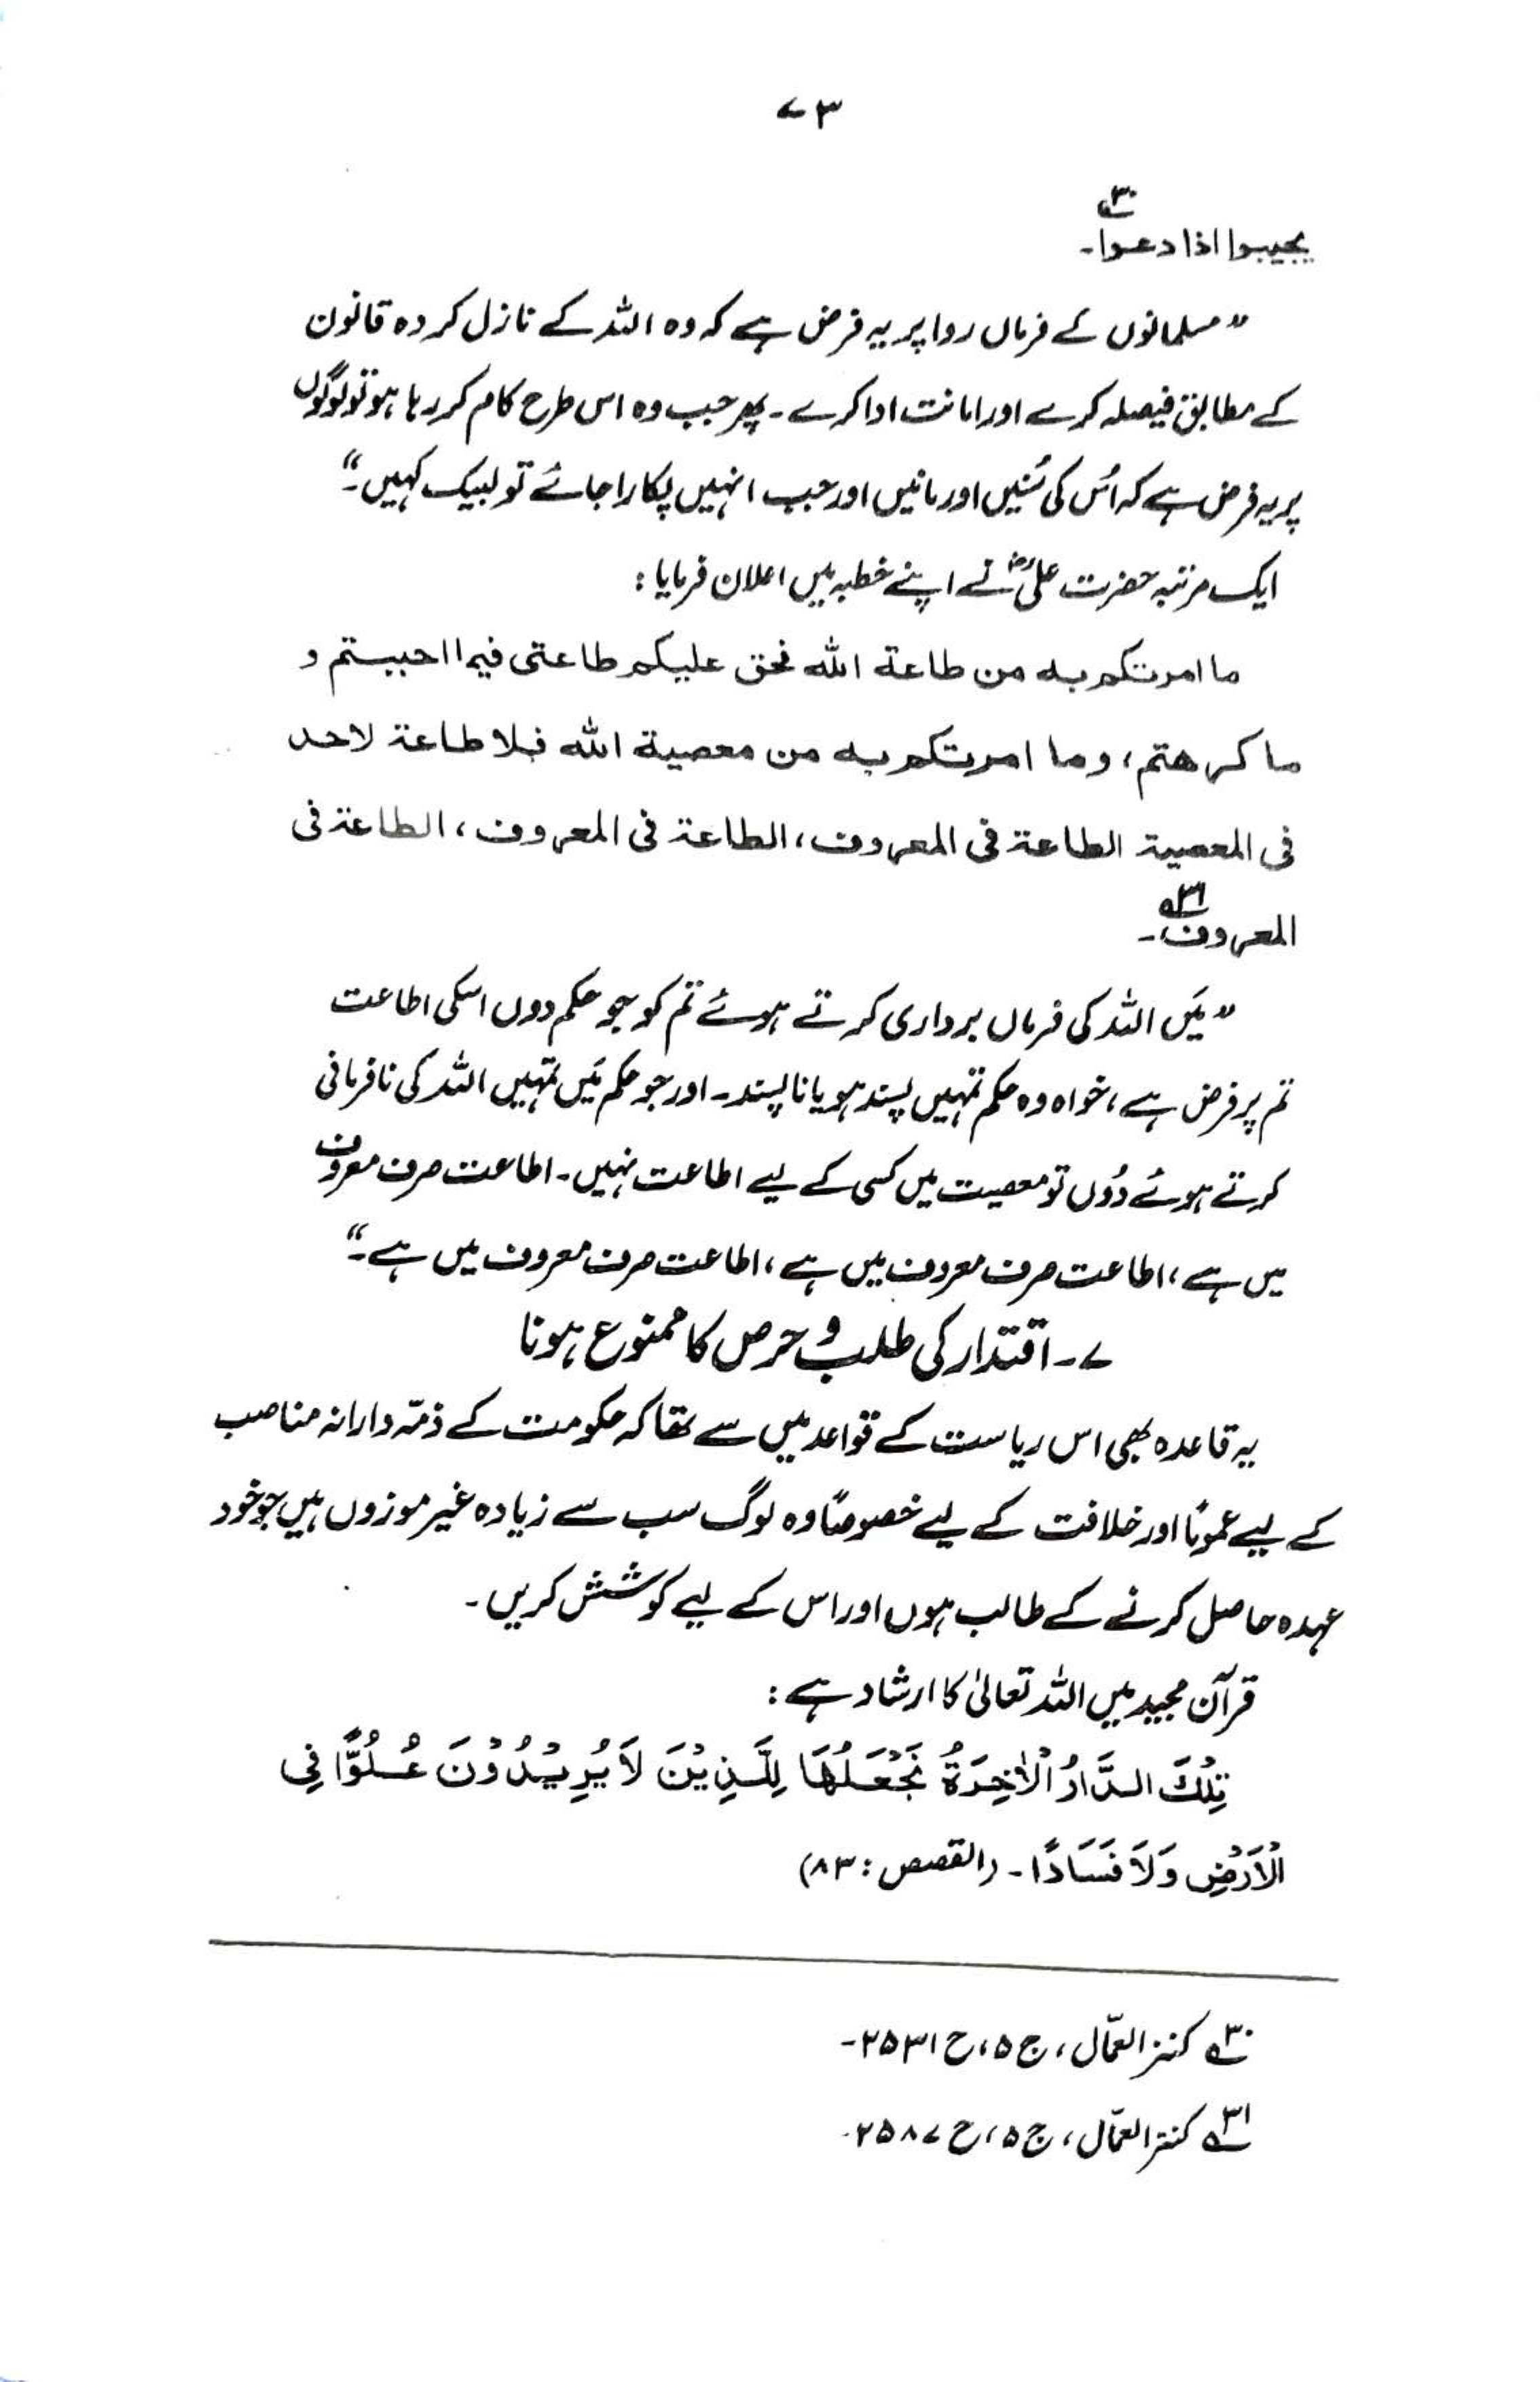 ۷۳
یجیبوا اذا دعوا۔۳۰؎
”مسلمانوں کے فرماں روا پر یہ فرض ہے کہ وہ اللہ کے نازل کردہ قانون
کے مطابق فیصلہ کرے اور امانت ادا کرے۔ پھر جب وہ اس طرح کام کر رہا ہو تو لوگوں
پر یہ فرض ہے کہ اُس کی سُنیں اور مانیں اور جب انہیں پکارا جائے تو لبیک کہیں۔“
ایک مرتبہ حضرت علیؓ نے اپنے خطبہ میں اعلان فرمایا:
ما امرتکم بہ من طاعة اللہ فحق علیکم طاعتی فیما احببتم و
ما کرھتم، وما امرتکم بہ من معصیة اللہ فلا طاعة لاحد
فی المعصیة الطاعة فی المعروف، الطاعة فی المعروف، الطاعة فی
المعروف۔۳۱؎
”مَیں اللہ کی فرماں برداری کرتے ہوئے تم کو جو حکم دوں اسکی اطاعت
تم پر فرض ہے، خواہ وہ حکم تمہیں پسند ہو یا ناپسند۔ اور جو حکم مَیں تمہیں اللہ کی نافرمانی
کرتے ہوئے دُوں تو معصیت میں کسی کے لیے اطاعت نہیں۔ اطاعت صرف معروف
میں ہے، اطاعت صرف معروف میں ہے، اطاعت صرف معروف میں ہے۔“
۷۔ اقتدار کی طلب و حرص کا ممنوع ہونا
یہ قاعدہ بھی اس ریاست کے قواعد میں سے تھا کہ حکومت کے ذمّہ دارانہ مناصب
کے لیے عموماً اور خلافت کے لیے خصوصاً وہ لوگ سب سے زیادہ غیر موزوں ہیں جو خود
عہدہ حاصل کرنے کے طالب ہوں اور اس کے لیے کوشش کریں۔
قرآن مجید میں اللہ تعالیٰ کا ارشاد ہے:
تِلْكَ الدَّارُ الْاٰخِرَةُ نَجْعَلُهَا لِلَّذِيْنَ لَا يُرِيْدُوْنَ عُلُوًّا فِي
الْاَرْضِ وَلَا فَسَادًا۔ (القصص: ۸۳)
۳۰؎ کنز العمّال، ج ۵، ح ۲۵۳۱۔
۳۱؎ کنز العمّال، ج ۵، ح ۲۵۸۷۔